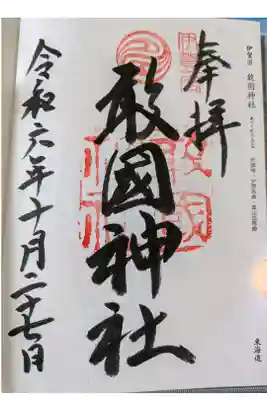 伊賀国 敢国神社
東海道
奉拝
敢國神社
令和六年十月二十七日